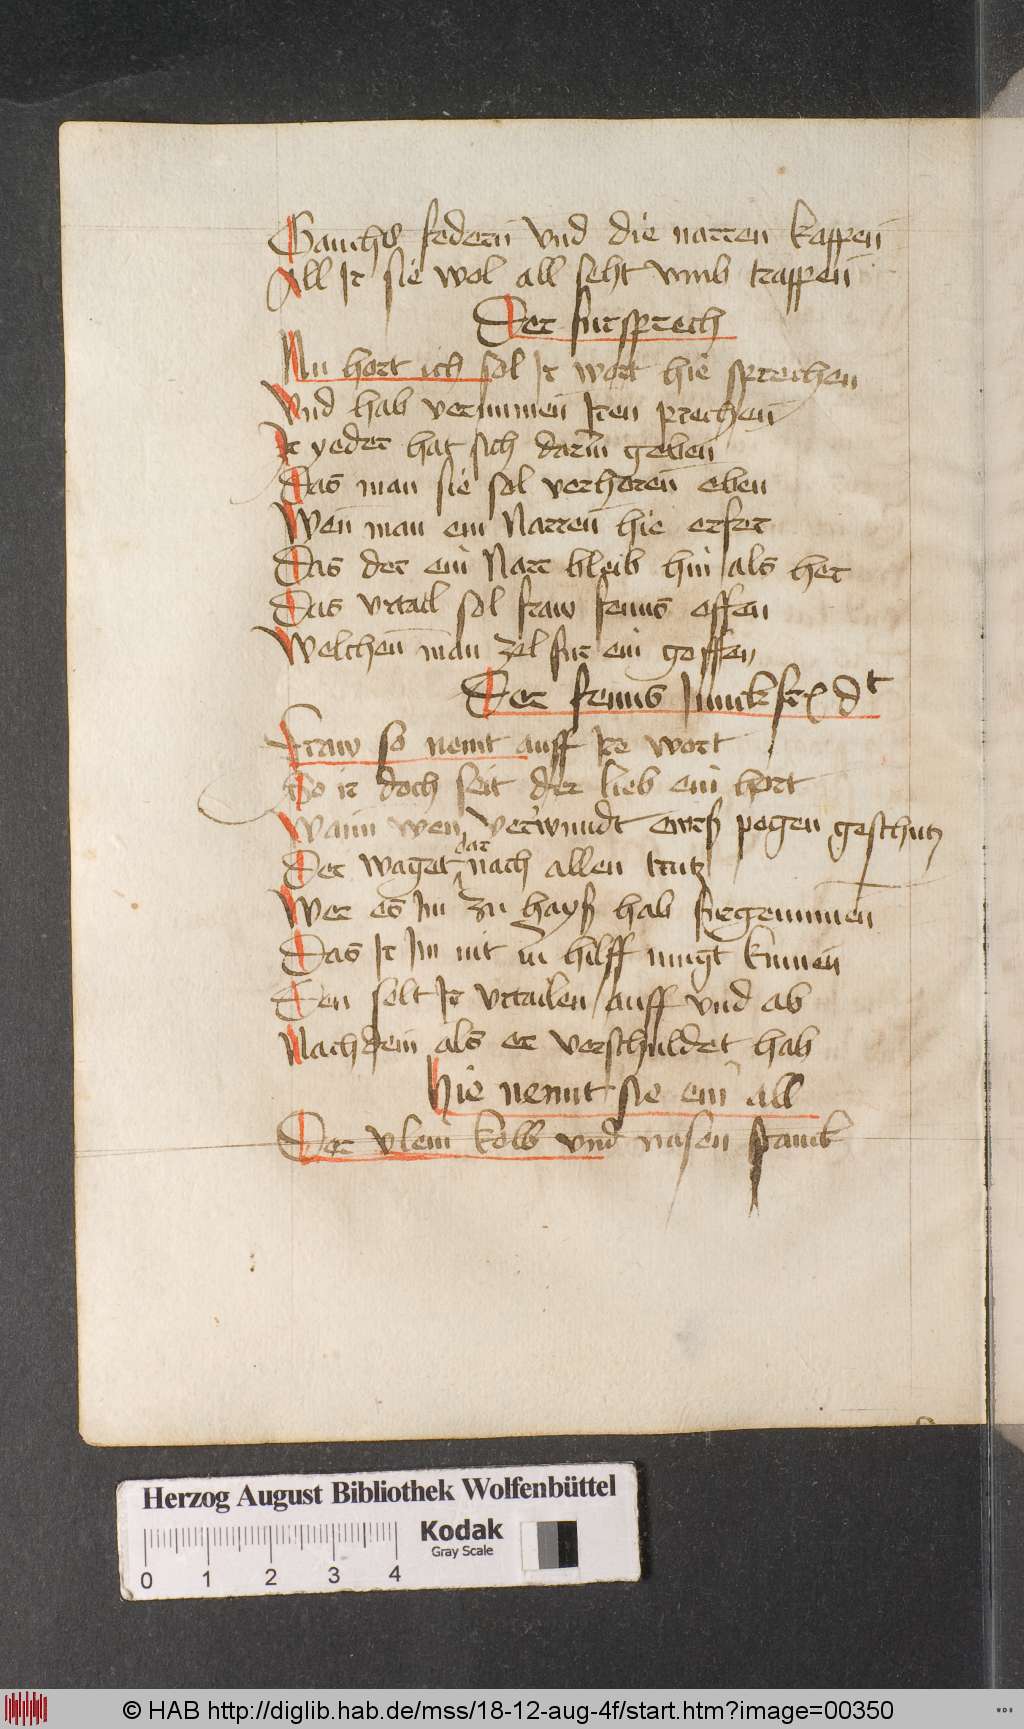 Gauchs federn vnd die narren kappen
All Ir sie wol all seht vmb trappen
Der fursprech
Nu hort ich sol Ir wort hie sprechen
Vnd hab vernumen Iren prechen
Ir yeder hat sich darin geben
Das man sie sol verhoren eben
Wen man ein Narren hie erfer
Das der ein Narr bleib hin als her
Das vrtail sol fraw fenus effen
Welchen man zel fur ein geffen
Der fenus Junckfr dt
Fraw so nemt auff Ire wort
So ir doch seit der lieb ein hort
Wann wen verwundt ewrß pogen geschutz
Der waget dar nach allen trutz
Wer es Im zu hayß hab furgenummen
Das Ir Im nit zu hilff mugt kumen
Den solt Ir vrtailen auff vnd ab
Nachdem als er verschuldet hab
Hie nennt sie ein all
Der vlein kolb vnd nasen stanck
Herzog August Bibliothek Wolfenbüttel
Kodak
Gray Scale
0 1 2 3 4
© HAB http://diglib.hab.de/mss/18-12-aug-4f/start.htm?image=00350